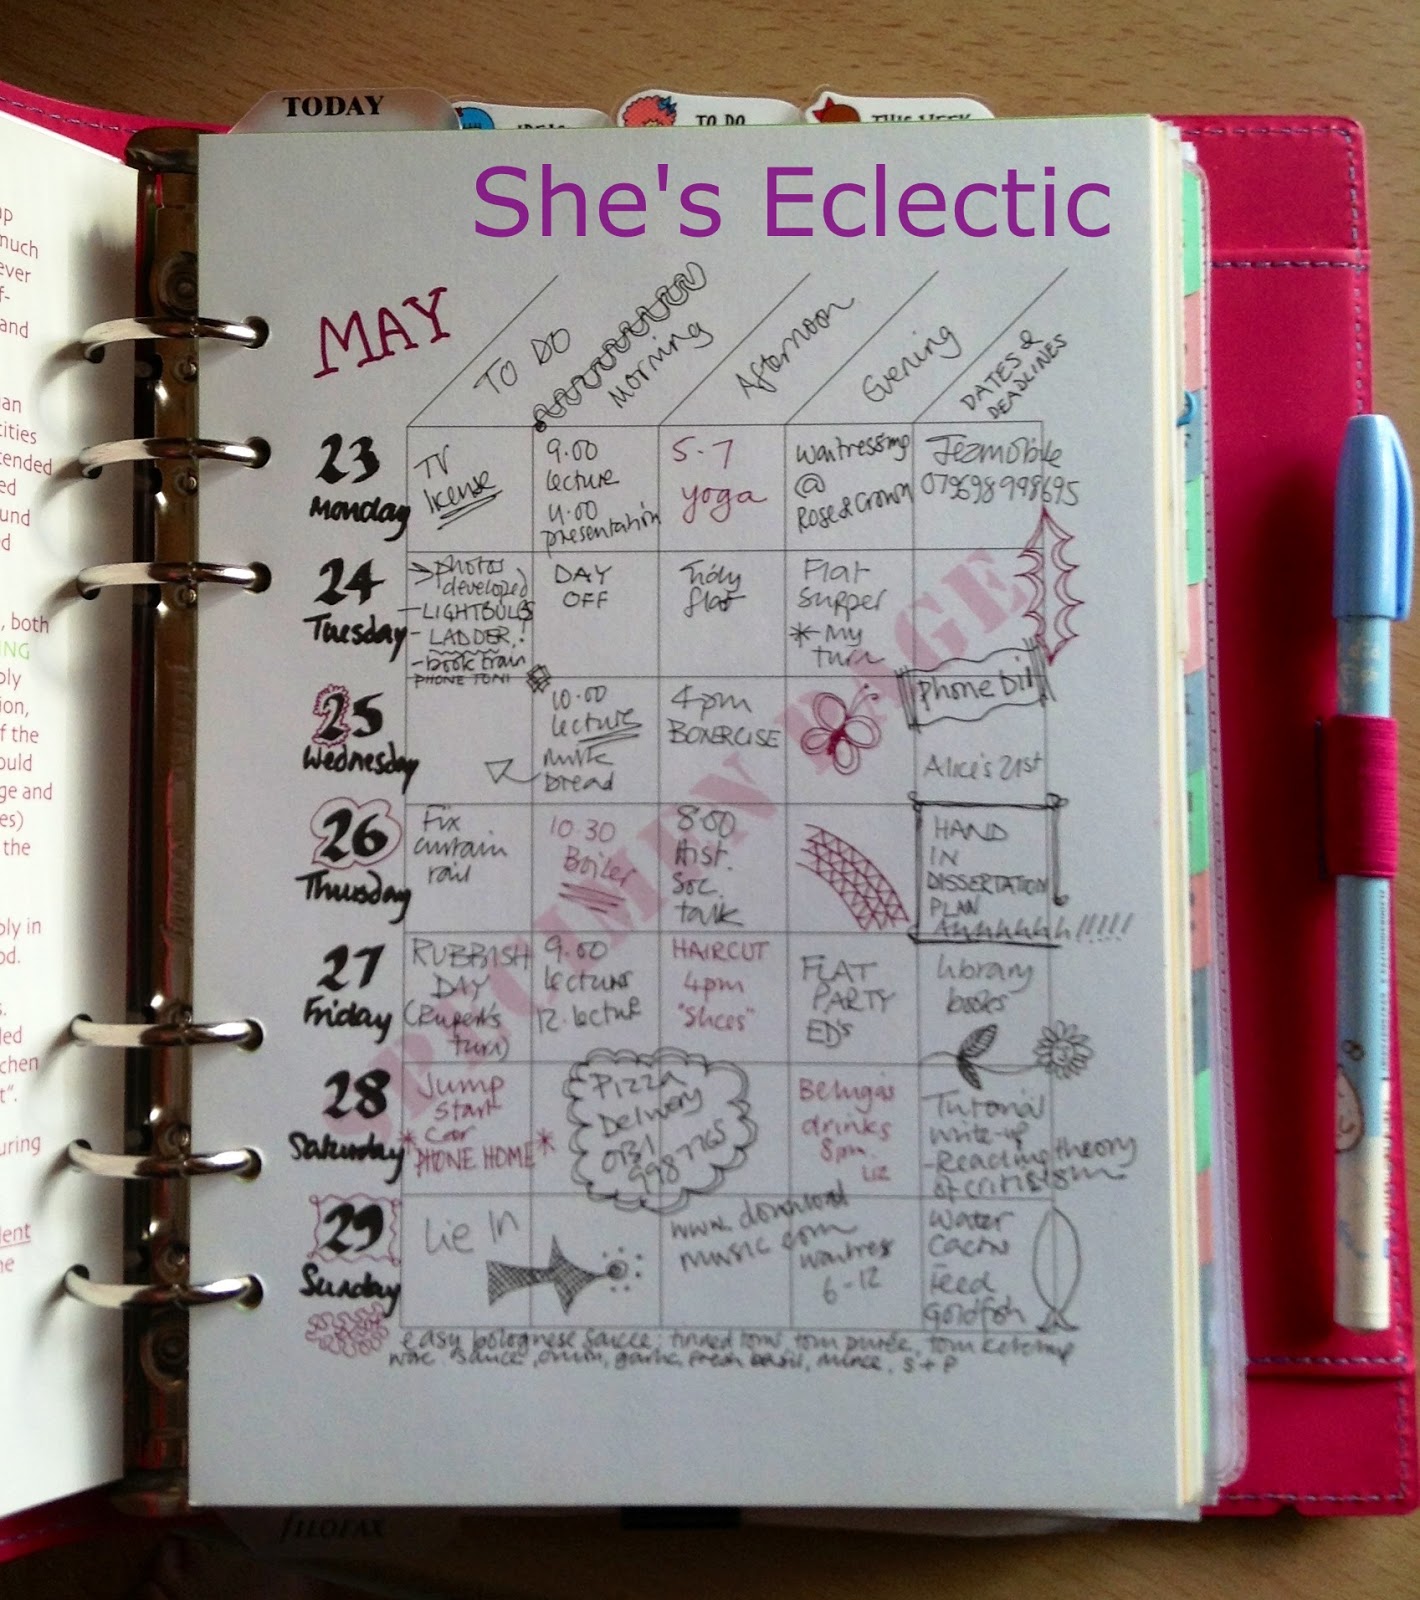 TODAY
TO DO
THIS WEEK
She's Eclectic
MAY
TO DO
Morning
Afternoon
Evening
DATES &
DEADLINES
23
Monday
TV
license
9.00
lecture
presentation
5-7
yoga
Waitressing
@
Rose & Crown
Jezmobile
24
Tuesday
photos
developed
- LIGHTBULBS
- LADDER!
- book train
PHONE TONI
DAY
OFF
Tidy
flat
Flat
supper
* My
turn
25
Wednesday
10.00
lecture
milk
bread
4pm
BOXERCISE
phone bill
Alice's 21st
26
Thursday
Fix
curtain
rail
10.30
Boiler
8.00
Hist.
Soc.
talk
HAND
IN
DISSERTATION
PLAN
27
Friday
RUBBISH
DAY
(Rupert's
turn)
9.00
lecture
12. lecture
HAIRCUT
4pm
"Slices"
FLAT
PARTY
ED's
library
books
28
Saturday
Jump
start
car
* PHONE HOME *
Pizza
Delivery
0131
998 7765
Beluga's
drinks
8pm.
LIZ
Tutorial
write-up
- Reading theory
of criticism
29
Sunday
Lie In
www.download
music.com
waitress
6-12
Water
Cactus
Feed
Goldfish
easy bolognese sauce: tinned toms, tom purée, tom ketchup
worc. sauce, onion, garlic, fresh basil, mince, s + p
SPECIMEN PAGE
FILOFAX
up
much
ever
and
both
ption,
of the
ould
ge and
the
ply in
chen
uring